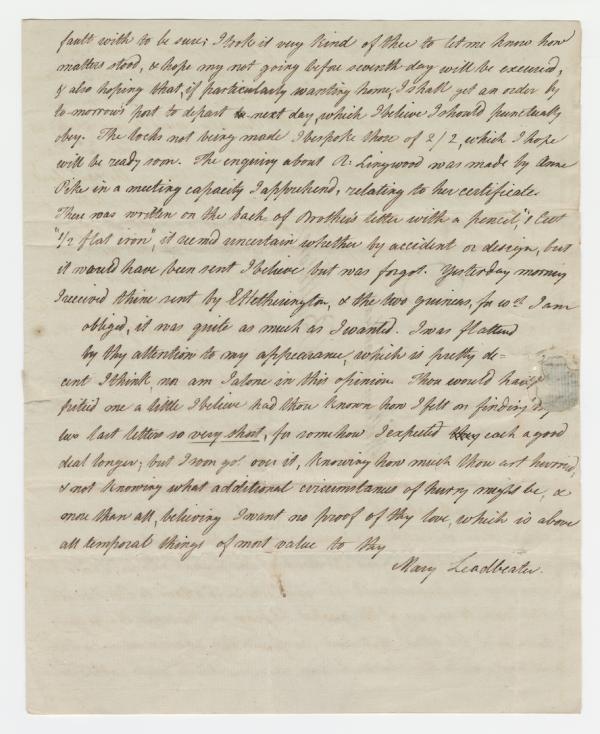 fault with to be sure; I took it very kind of thee to let me know how
matters stood, & hope my not going before seventh day will be excused,
& also hoping that, if particularly wanting home, I shall get an order by
to-morrow's post to depart next day, which I believe I should punctually
obey. The locks not being made I bespoke those of 2/2, which I hope
will be ready soon. The enquiry about R: Lingwood was made by Anne
Pike in a meeting capacity I apprehend, relating to her certificate.
There was written on the back of Brother's letter with a pencil, "1 Cwt
"1/2 flat iron", it seem'd uncertain whether by accident or design, but
it would have been sent I believe but was forgot. Yesterday morning
I received thine sent by E Hetherington, & the two guineas, for wch. I am
obliged, it was quite as much as I wanted. I was flattered
by thy attention to my appearance, which is pretty de=
cent I think, nor am I alone in this opinion. Thou would have
pitied me a little I believe had thou known how I felt on finding thy
two last letters so very short, for somehow I expected each a good
deal longer; but I soon got over it, knowing how much thou art hurried,
& not knowing what additional circumstances of hurry might be, &
more than all, believing I want no proof of thy love, which is above
all temporal things of most value to thy
Mary Leadbeater.